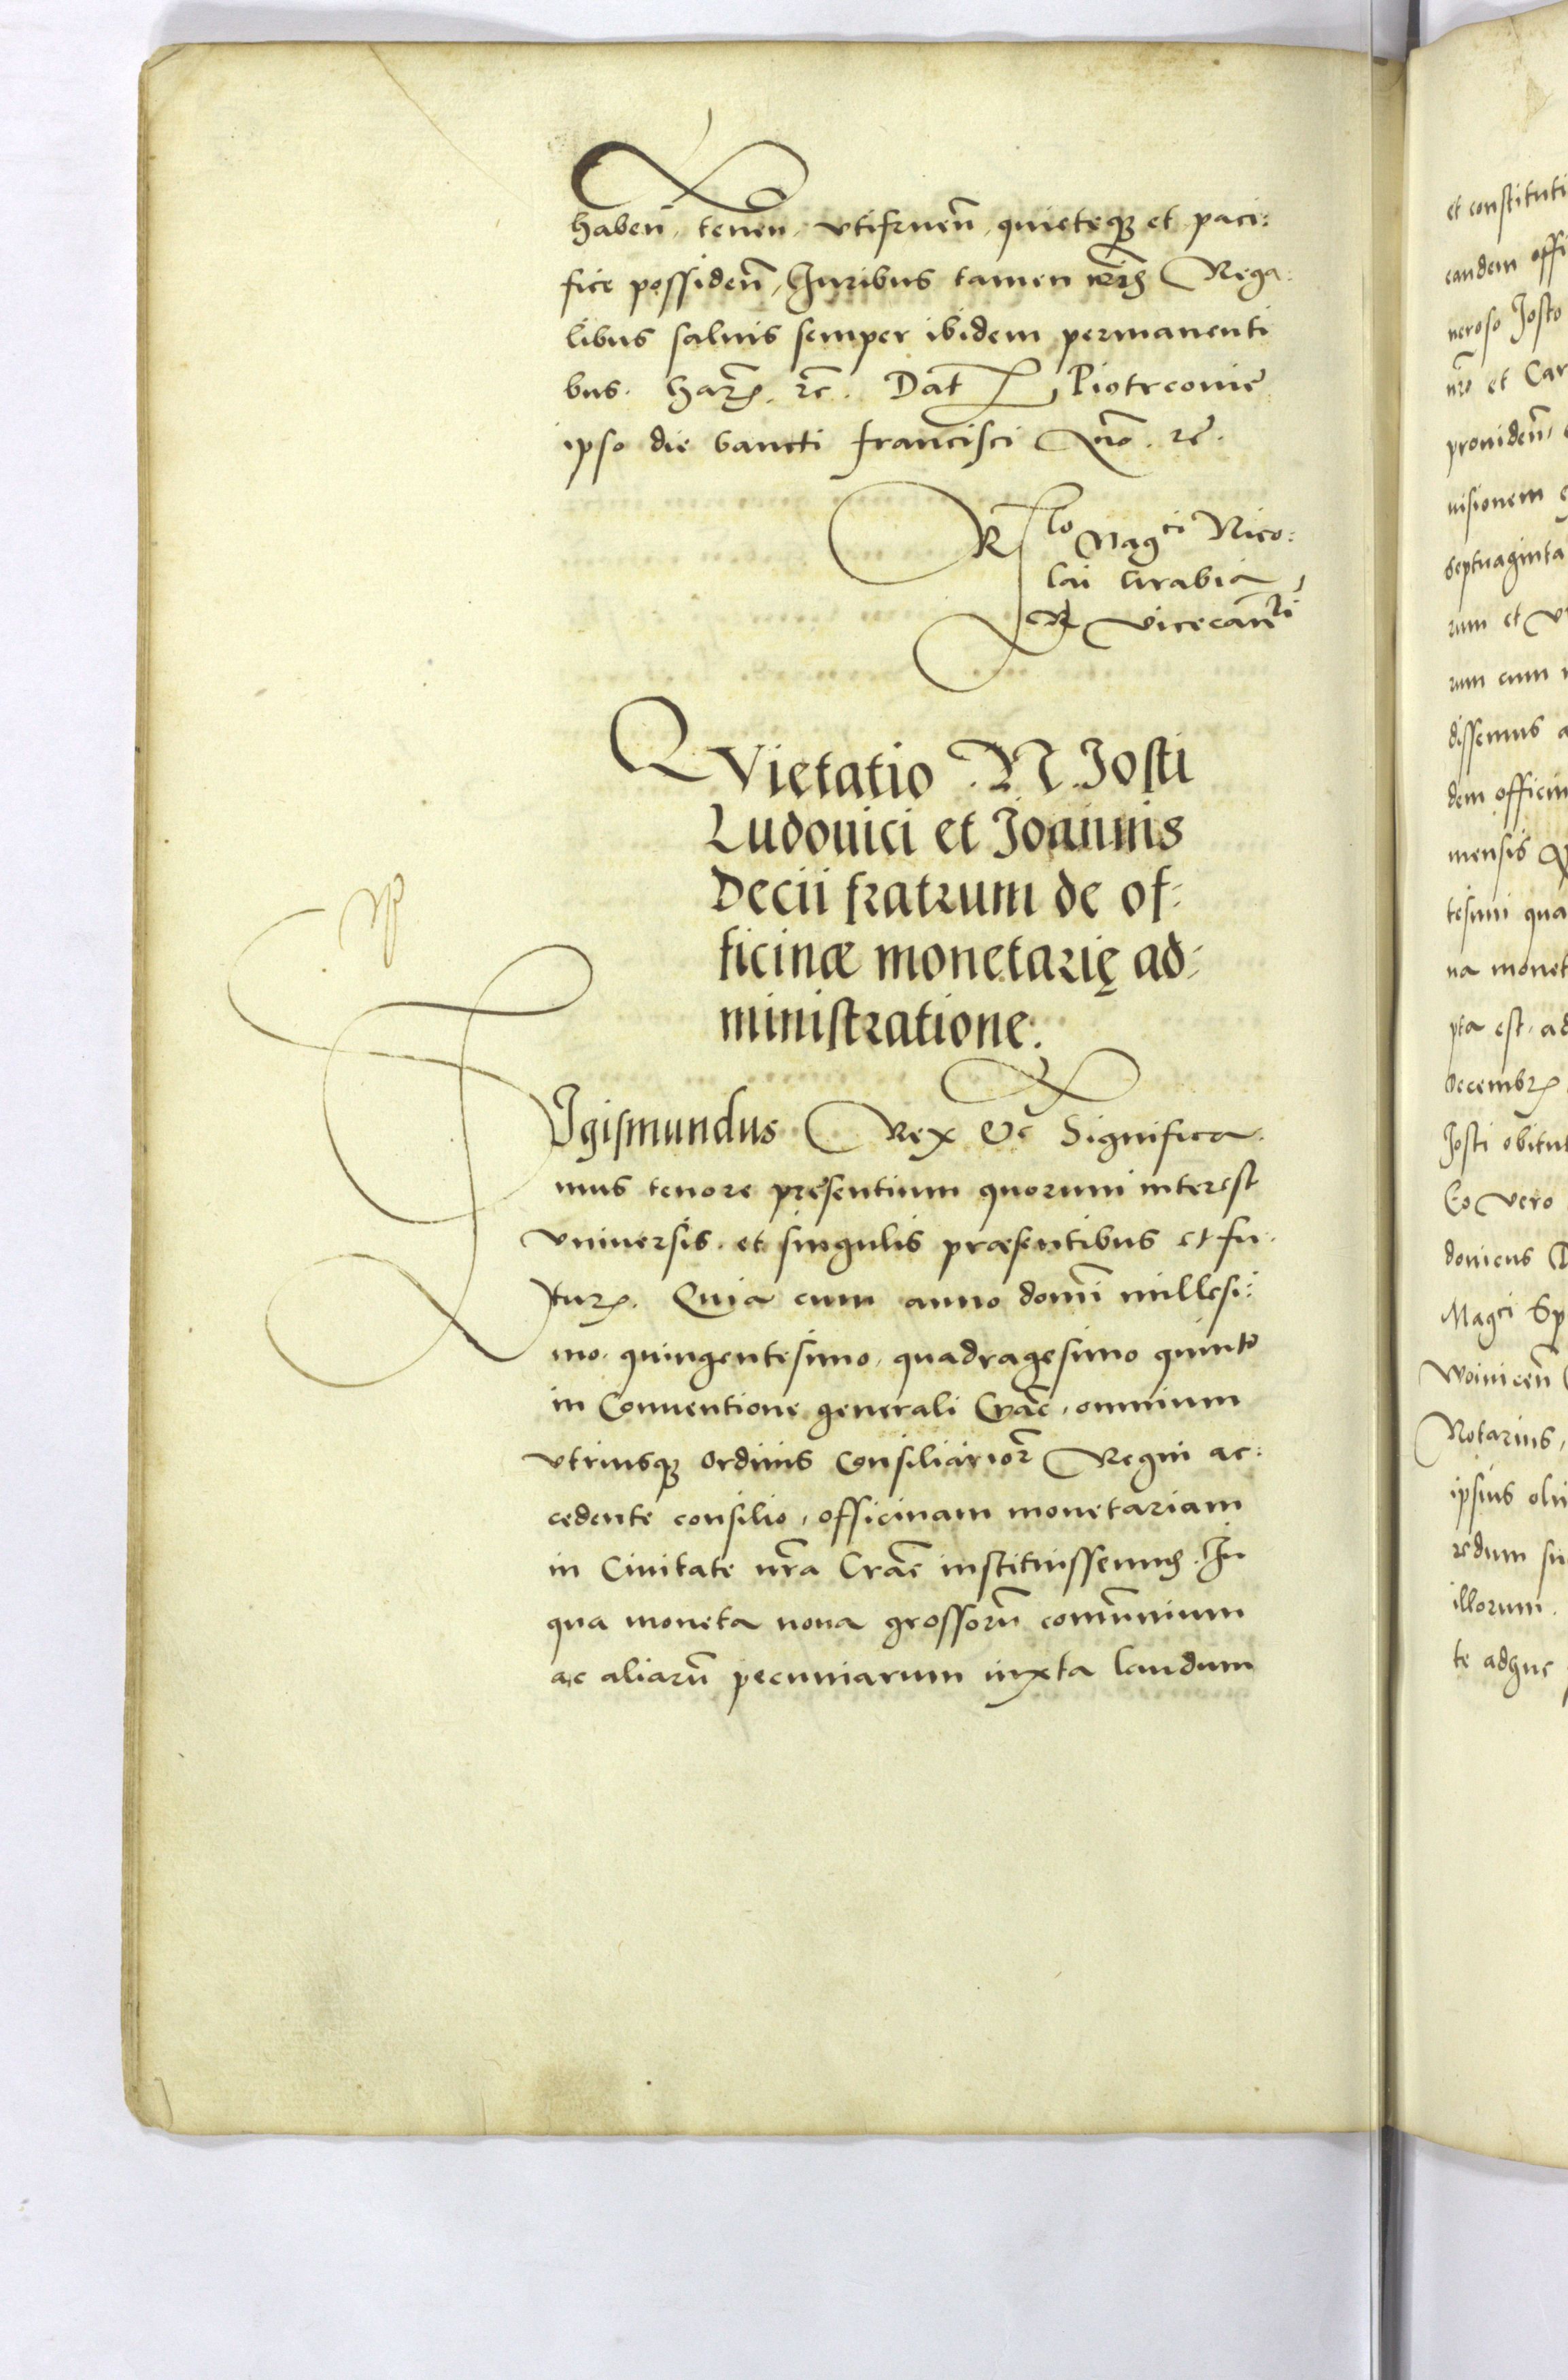 habeñ, teneñ, vtifrueñ, quieteqꝫ et paci:
fice possideñ, Iuribus tamen nr̃is Rega:
libus saluis semper ibidem permanenti
bus. Harꝝ. ꝛc̃. Dat̃ Piotrcouie
ipso die Sancti francisci A͂no. ꝛc̃.
Rlo Magci Nico:
lai Grabia
R vicecancli
QVietatio N. Josti
Ludouici et Joannis
Decii fratrum de of:
ficinæ monetarię ad:
ministratione.
SIgismundus Rex &c̃ Significa
mus tenore presentium quorum interest
vniuersis. et singulis præsentibus et fu.
turꝝ. Quia cum anno domĩ millesi:
mo. quingentesimo. quadragesimo quinto
in Conuentione generali Crac̃, omnium
vtriusqꝫ ordinis Consiliarioꝝ Regni ac:
cedente consilio, officinam monetariam
in Ciuitate nr̃a Crac̃ instituissemus. In
qua moneta noua grossorũ com̃unium
ac aliarũ pecuniarum iuxta laudum
et constituti
eandem offi
neroso Josto
nr̃o et Car
prouideñ,
uisionem
septuaginta
rum et v
rum cum
dissemus a
dem officin
mensis
tesimi qua
ua monet
pta est, ad
Decembꝝ
Josti obitu
Eo vero
douicus D
Magci Sp
Woiniceñ
Notarius,
ipsius oli
redum su
illorum.
te adhuc